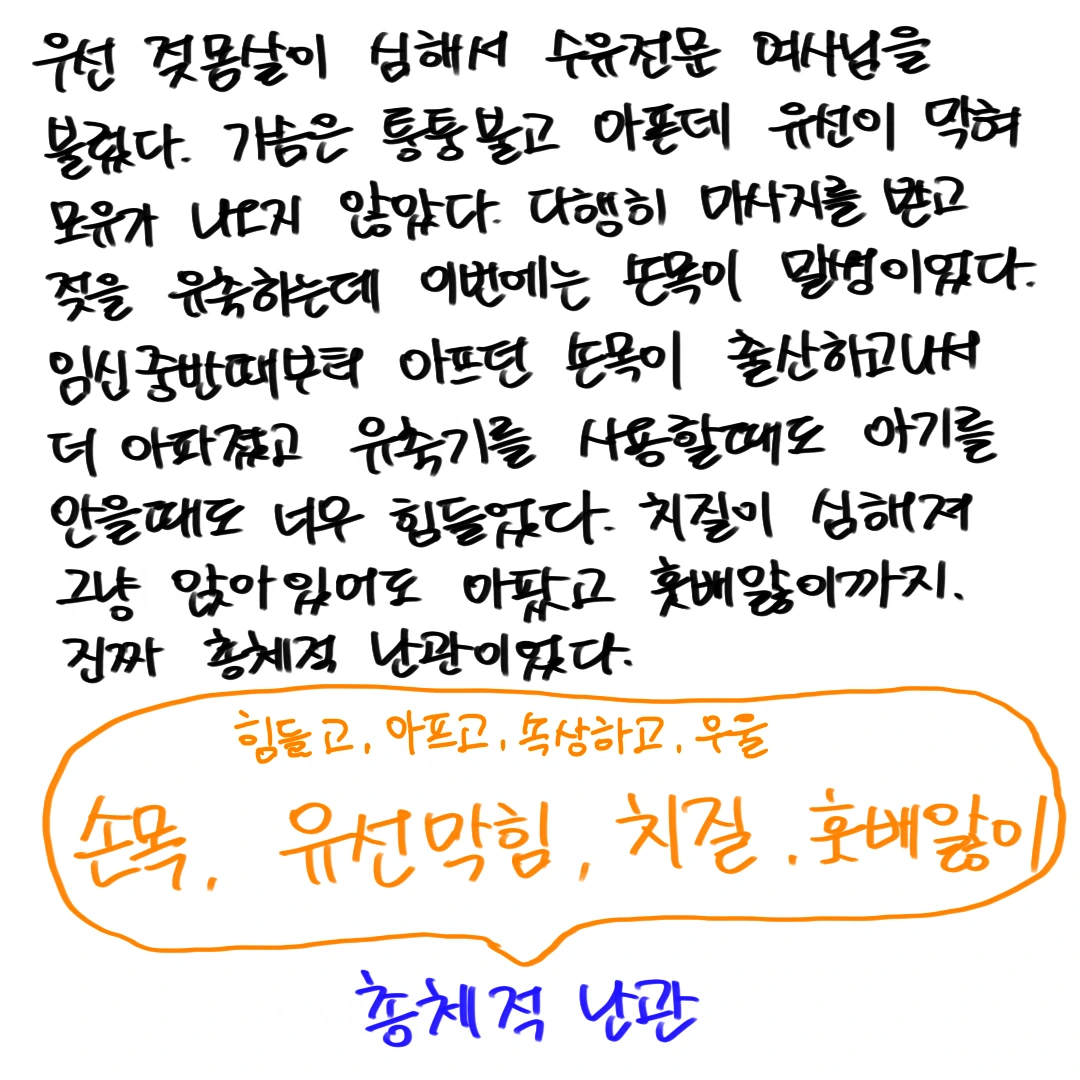 우선 젖몸살이 심해서 수유전문 여사님을
불렀다. 가슴은 퉁퉁불고 아픈데 유선이 막혀
모유가 나오지 않았다. 다행히 마사지를 받고
젖을 유축하는데 이번에는 손목이 말썽이었다.
임신중반때부터 아프던 손목이 출산하고나서
더 아파졌고 유축기를 사용할때도 아기를
안을때도 너무 힘들었다. 치질이 심해져
그냥 앉아있어도 아팠고 훗배앓이까지.
진짜 총체적 난관이었다.
힘들고, 아프고, 속상하고, 우울
손목, 유선막힘, 치질, 훗배앓이
총체적 난관